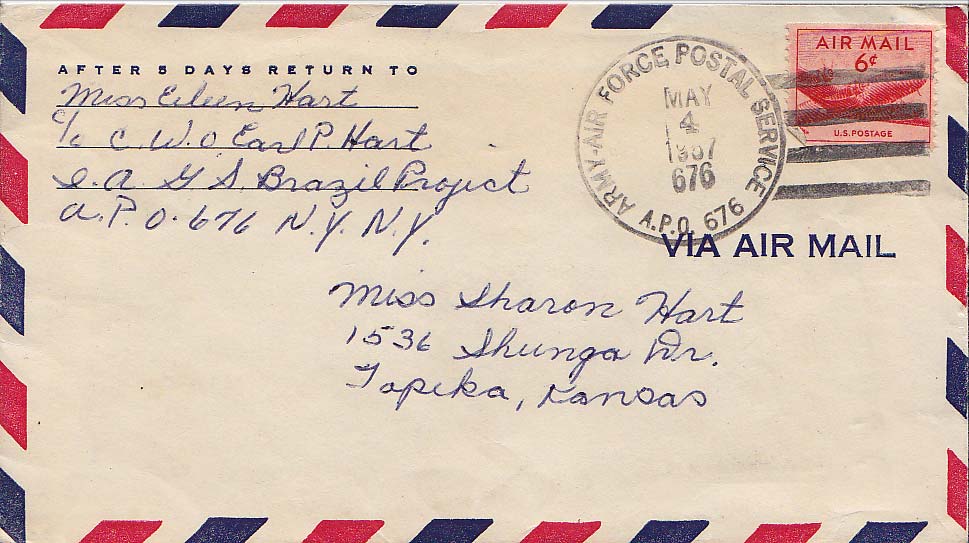 AFTER 5 DAYS RETURN TO
Miss Eileen Hart
c/o C.W.O Earl P. Hart
I.A.G.S. Brazil Project
A.P.O. 676 N.Y. N.Y.
ARMY-AIR FORCE POSTAL SERVICE
MAY
4
1957
676
A.P.O. 676
AIR MAIL
6¢
U.S. POSTAGE
VIA AIR MAIL
Miss Sharon Hart
1536 Shunga Dr.
Topeka, Kansas